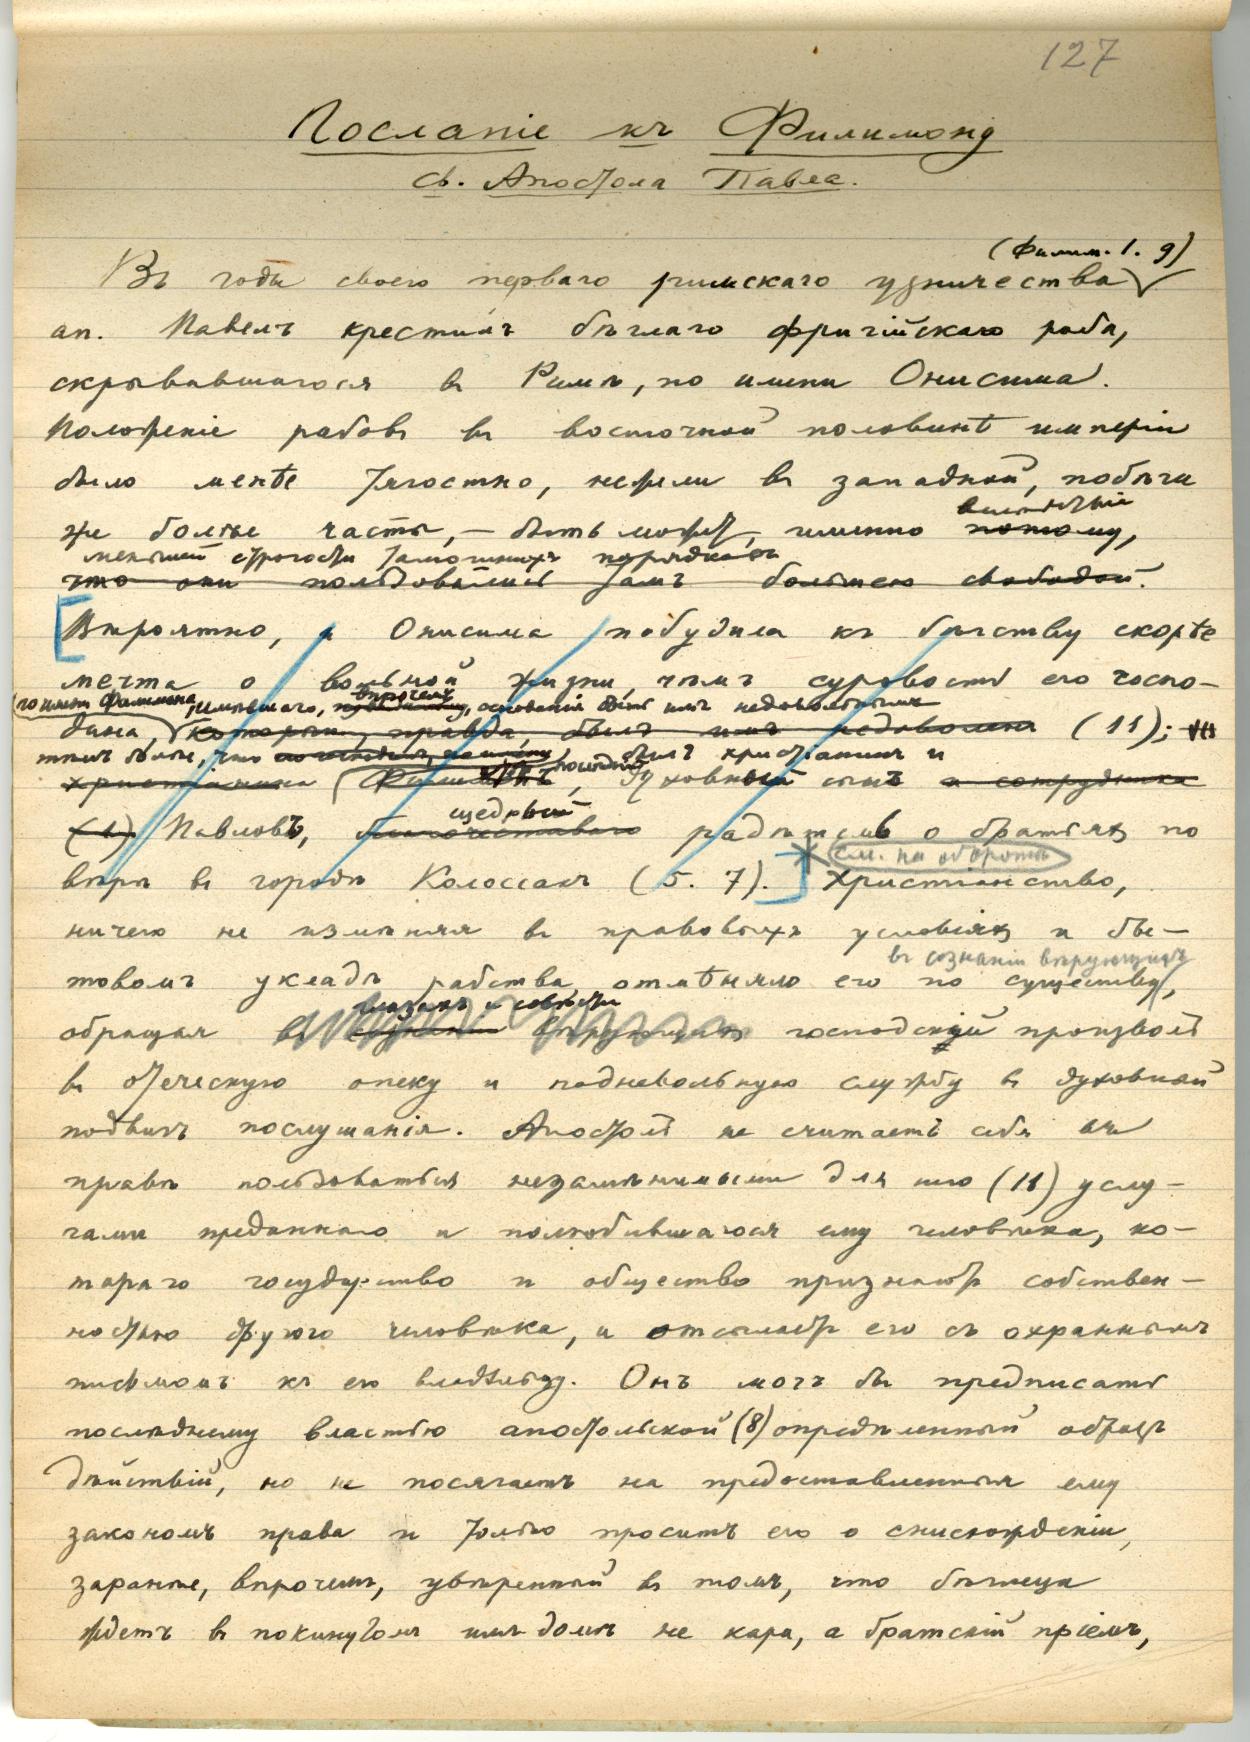 127
Посланіе къ Филимону
св. Апостола Павла.
(Филим. 1. 9)
Въ годы своего перваго римскаго узничества
ап. Павелъ крестилъ бѣглаго фригійскаго раба,
скрывавшагося въ Римѣ, по имени Онисима.
Положеніе рабовъ въ восточной половинѣ имперіи
было менѣе тягостно, нежели въ западной, побѣги
же болѣе часты, — быть можетъ, именно потому,
вслѣдствіе
меньшей строгости тамошнихъ порядковъ
что они пользовались тамъ большею свободой.
Вѣроятно, и Онисима побудила къ бѣгству скорѣе
мечта о вольной жизни, чѣмъ суровость его госпо-
(по имени Филимона, имѣвшаго, впрочемъ, основанія быть имъ недовольнымъ
дина, который, правда, былъ имъ недоволенъ (11);
тѣмъ болѣе, что послѣдній былъ христіанинъ и
христіанина Филимонъ, духовный сынъ и сотрудника
(1) Павловъ, щедрый
благочестиваго радѣтель о братьяхъ по
* см. на оборотѣ
вѣрѣ въ городѣ Колоссахъ (5. 7).] Христіанство,
ничего не измѣняя въ правовыхъ условіяхъ и бы-
въ сознаніи вѣрующихъ
товомъ укладѣ рабства, отмѣняло его по существу,
глазахъ и совѣсти
обращая въ сознаніи вѣрующихъ господскій произволъ
въ отеческую опеку и подневольную службу въ духовный
подвигъ послушанія. Апостолъ не считаетъ себя въ
правѣ пользоваться незамѣнимыми для него (11) услу-
гами преданнаго и полюбившагося ему человѣка, ко-
тораго государство и общество признаютъ собствен-
ностью другого человѣка, и отсылаетъ его съ охраннымъ
письмомъ къ его владѣльцу. Онъ могъ бы предписать
послѣднему властью апостольской (8) опредѣленный образъ
дѣйствій, но не посягаетъ на предоставленныя ему
закономъ права и только проситъ его о снисхожденіи,
заранѣе, впрочемъ, увѣренный въ томъ, что бѣглеца
ждетъ въ покинутомъ имъ домѣ не кара, а братскій пріемъ,